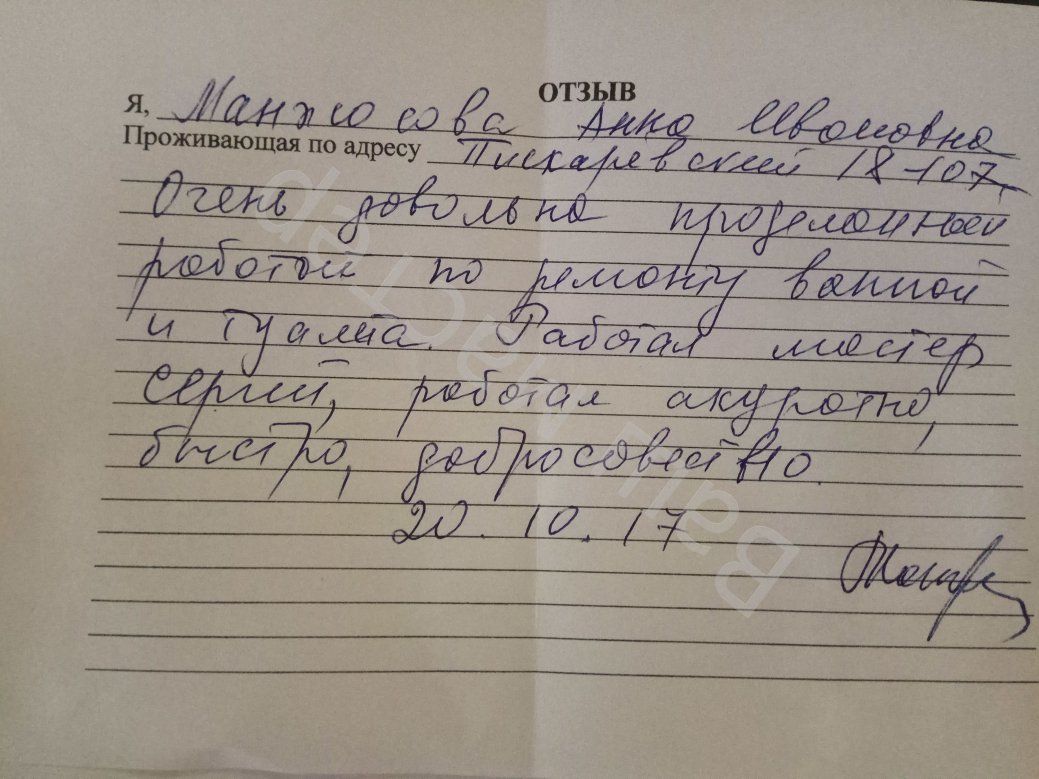 ОТЗЫВ
Я, Манжосова Анна Ивановна
Проживающая по адресу Пискаревский 18-107,
Очень довольна проделанной
работой по ремонту ванной
и туалета. Работал мастер
Сергей, работал акуратно,
быстро, добросовестно.
20.10.17
Ваш мастер